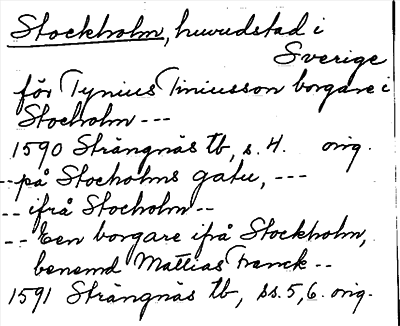 Stockholm, huvudstad i
Sverige
för Tynius Tiniusson borgare i
Stocholm ---
1590 Strängnäs tb, s. 4. orig.
-- på Stocholms gatu, ---
-- ifrå Stocholm --
-- Een borgare ifrå Stockholm,
benemd Mattias Franck --
1591 Strängnäs tb, ss. 5, 6. orig.